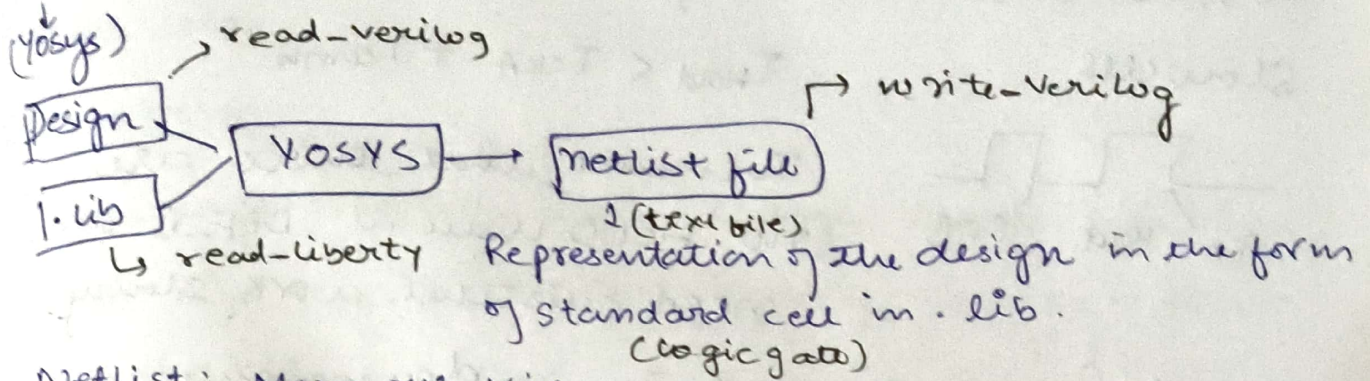 (Yosys)
read_verilog
Design
YOSYS
netlist file
write_verilog
.lib
(text file)
read_liberty
Representation of the design in the form
of standard cell in .lib.
(logic gate)
Netlist: